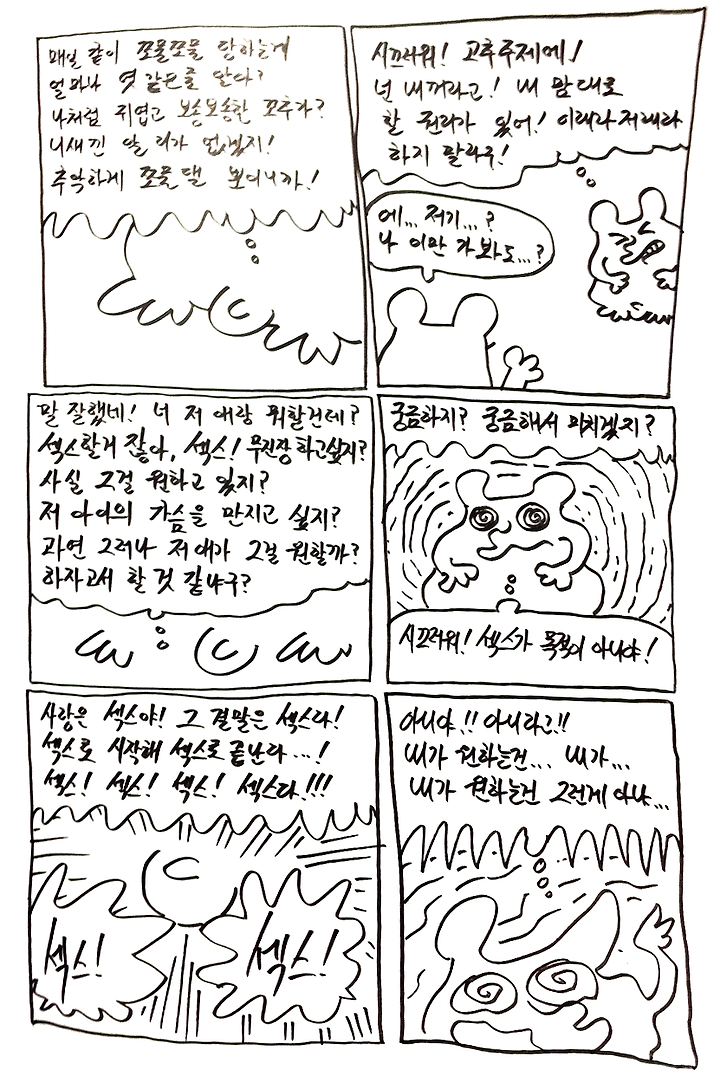 매일 같이 쪼물쪼물 당하는게
얼마나 엿 같은줄 알아?
나처럼 귀엽고 뽀송뽀송한 꼬추가?
니새낀 알 리가 없겠지!
추악하게 쪼물댈 뿐이니까!
시끄러워! 고추주제에!
넌 내꺼라고! 내 맘대로
할 권리가 있어! 이래라저래라
하지 말라구!
에... 저기...?
나 이만 가봐도...?
말 잘했네! 너 저 애랑 뭐할건데?
섹스할거 잖아, 섹스! 무진장 하고싶지?
사실 그걸 원하고 있지?
저 아이의 가슴을 만지고 싶지?
과연 그러나 저 애가 그걸 원할까?
하자고서 할 것 같냐구?
궁금하지? 궁금해서 미치겠지?
시끄러워! 섹스가 목적이 아니야!
사랑은 섹스야! 그 결말은 섹스다!
섹스로 시작해 섹스로 끝난다...!
섹스! 섹스! 섹스! 섹스다!!!
섹스!
섹스!
아니야!! 아니라고!!
내가 원하는건... 내가...
내가 원하는건 그런게 아냐...